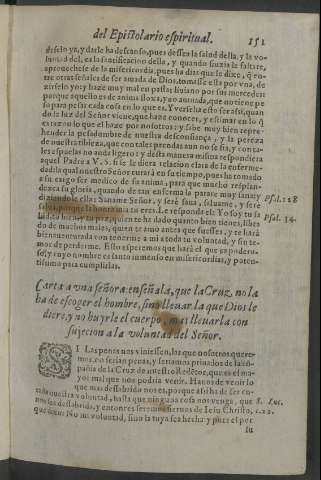 del Epistolario espiritual. 151
dirselo yo, y darle ha descanso, pues dessea la salud della, y la vo-
luntad del, es la santificacion della, y quando fuzia le faltare,
aprouechese de la misericordia, pues ha dias que le dixe, q̃ en-
tre otras señales de ser amada de Dios, tomasse esta por vna,
zirselo yo: y haze muy mal en
porque aquello es de anima floxa, y no amada, que no tiene pe
so para pesar cada cosa en lo que es. Y
do la luz del Señor viene, que haze conocer, y estimar en lo q̃
es razon lo que el haze por nosotros: y sabe muy bien repre-
hender la pesadumbre de nuestra desconfiança, y la pereza
de nuestra tibieza, que con tales prendas aun no se fia, y con ta-
les espuelas no anda ligero: y desta manera misma respondiera
aquel Padre a V. S. si se le diera relacion clara de la enferme-
dad: la qual nuestro Señor curarà en su tiempo, pues ha tomado
a su cargo ser medico de su anima, para que mucho resplan-
dezca su gloria, quando de tan enferma la parare muy sana: y
diziendole ella: Saname Señor, y serè sana, saluame, y serè
salua, porque la honra mia tu eres. Le responda el: Yo soy tu sa
lud,
do de muchos males, quien te amò antes que fuesses, y te harà
bienauenturada con tenerme a mi a toda tu voluntad, y sin te-
mor de perderme. Esto esperemos que harà el que es podero-
so, y cuyo nombre es santo inmenso en misericordias, y poten-
tissimo para cumplirlas.
Psal. 118
Psal. 34.
Carta a vna señora: enseñala, que la Cruz, no la
ha de escoger el hombre, sino lleuar la que Dios le
diere, y no huyrle el cuerpo, mas lleuarla con
sujecion a la voluntad del Señor.
SI Las penas nos viniessen, las que nosotros quere-
mos, no serian penas, y seriamos priuados de la cõ-
pañia de la Cruz de nuestro Redẽtor, que es el ma-
yor mal que nos podria venir. Hanos de venir lo
que mas desabrido nos es, porque assi ha de ser co-
nuestra voluntad, hasta que ninguna cosa nos venga, que
nos sea desabrida, y entonces seremos sieruos de Iesu Christo,
que dixo: No mi voluntad, sino la tuya sea hecha: y pues el por
S. Luc.
c. 22.
su